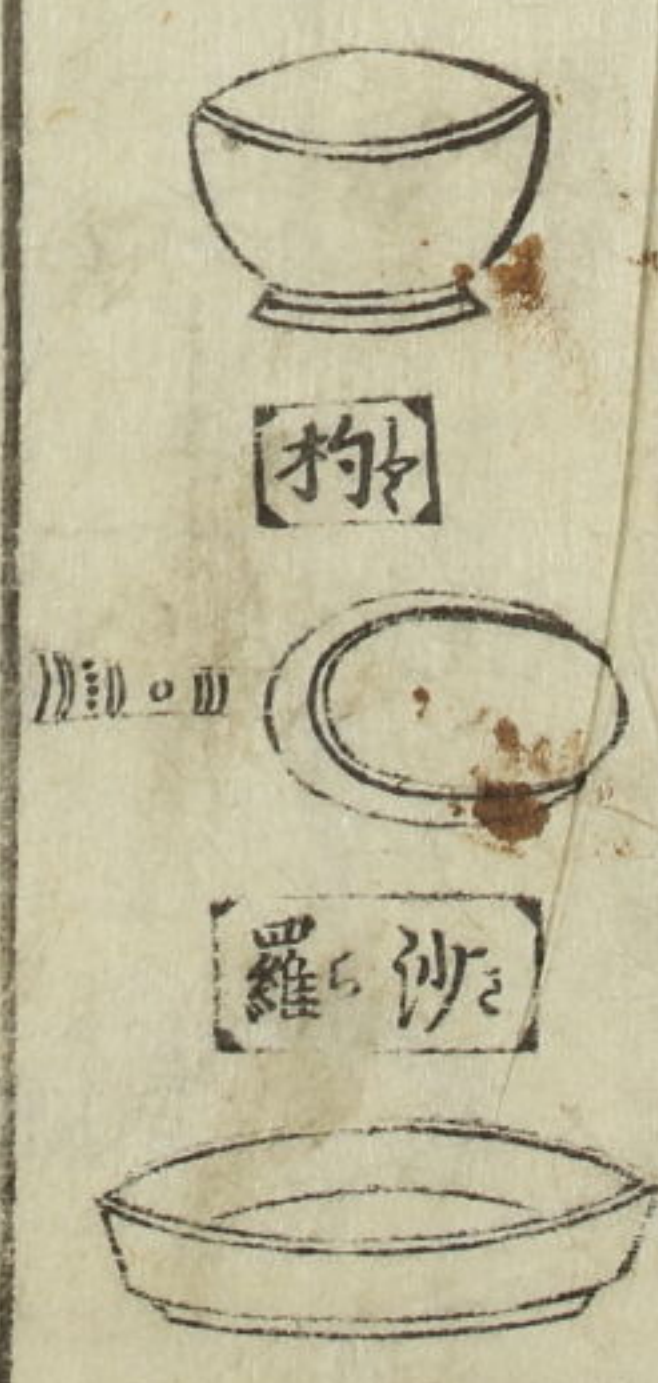 杓
沙さ羅ら